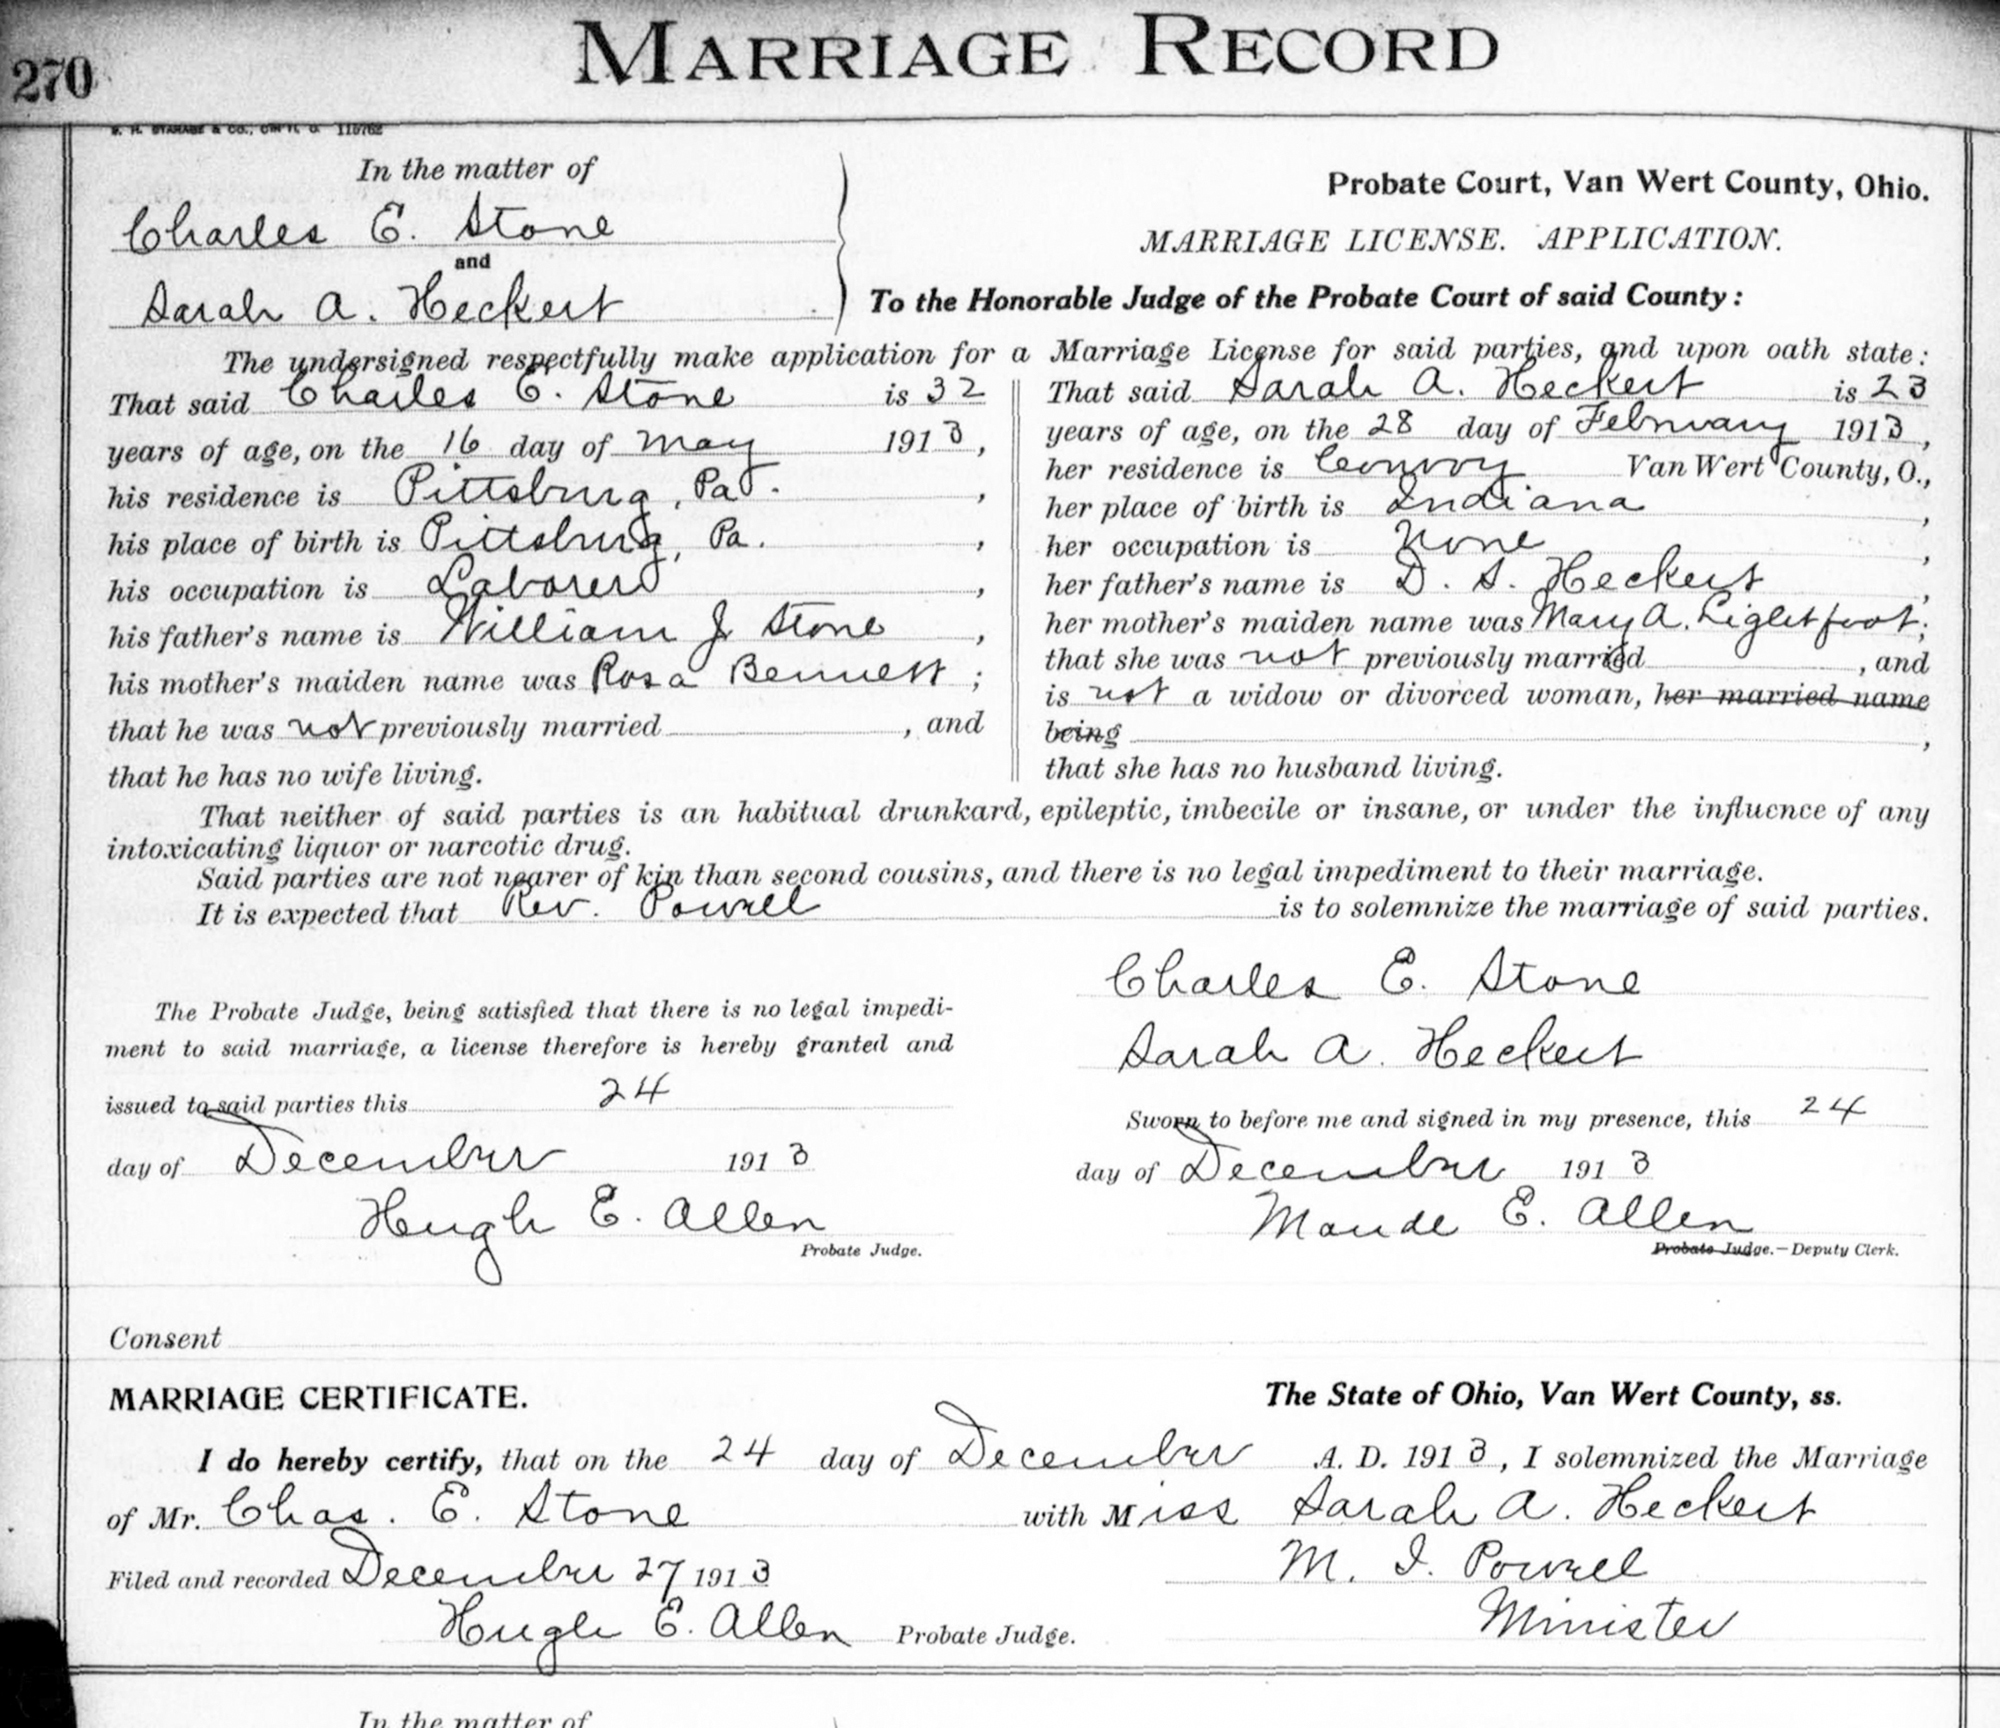 270
MARRIAGE RECORD
In the matter of
Charles E. Stone
and
Sarah A. Heckert
Probate Court, Van Wert County, Ohio.
MARRIAGE LICENSE. APPLICATION.
To the Honorable Judge of the Probate Court of said County:
The undersigned respectfully make application for a Marriage License for said parties, and upon oath state:
That said Charles E. Stone is 32
years of age, on the 16 day of May 1913,
his residence is Pittsburg, Pa.,
his place of birth is Pittsburg, Pa.,
his occupation is Laborer,
his father's name is William J Stone,
his mother's maiden name was Rosa Bennett;
that he was not previously married , and
that he has no wife living.
That said Sarah A. Heckert is 23
years of age, on the 28 day of February 1913,
her residence is Convoy Van Wert County, O.,
her place of birth is Indiana,
her occupation is None,
her father's name is D. S. Heckert,
her mother's maiden name was Mary A. Lightfoot;
that she was not previously married , and
is not a widow or divorced woman, her married name
being ,
that she has no husband living.
That neither of said parties is an habitual drunkard, epileptic, imbecile or insane, or under the influence of any
intoxicating liquor or narcotic drug.
Said parties are not nearer of kin than second cousins, and there is no legal impediment to their marriage.
It is expected that Rev. Powell is to solemnize the marriage of said parties.
Charles E. Stone
Sarah A. Heckert
The Probate Judge, being satisfied that there is no legal impedi-
ment to said marriage, a license therefore is hereby granted and
issued to said parties this 24
day of December 1913
Hugh E. Allen
Probate Judge.
Sworn to before me and signed in my presence, this 24
day of December 1913
Maude E. Allen
Probate Judge.—Deputy Clerk.
Consent
MARRIAGE CERTIFICATE.
The State of Ohio, Van Wert County, ss.
I do hereby certify, that on the 24 day of December A. D. 1913, I solemnized the Marriage
of Mr. Chas. E. Stone with Miss Sarah A. Heckert
Filed and recorded December 27 1913
M. I. Powell
Hugh E. Allen Probate Judge.
Minister
In the matter of